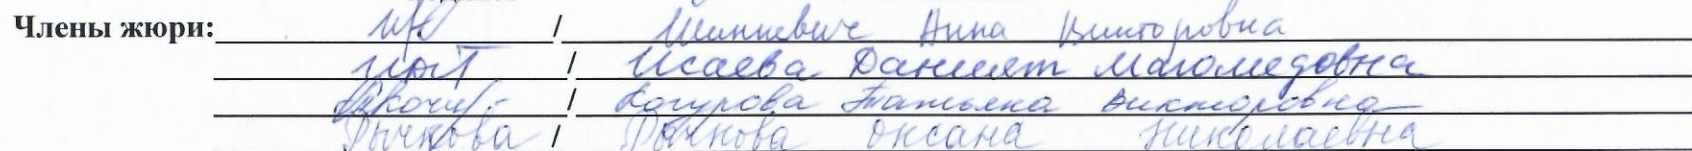 Члены жюри: / Шинкевич Анна Викторовна
/ Исаева Даният Магомедовна
/ Кочурова Татьяна Викторовна
Рычкова / Рычкова Оксана Николаевна